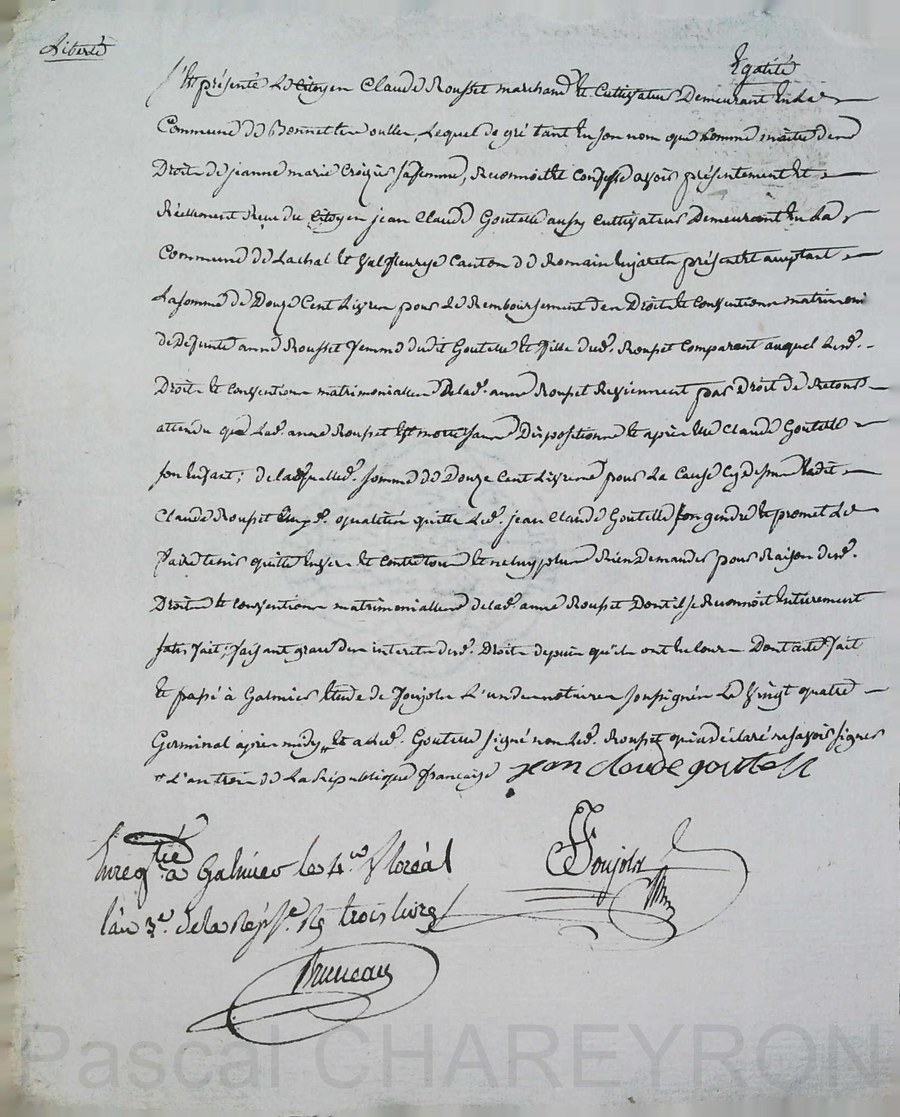 Liberté
Egalité
S'est présenté Le Citoyen Claude Rousset marchand et Cultivateur Demeurant En La
Commune de Bonnet Les oulles, Lequel de gré tant En son nom que homme maitre des
Droits de jeanne marie Croizier sa femme, Reconnoit et Confesse avoir présentement et
Réellement Reçu du Citoyen jean Claude Goutelle aussy Cultivateur Demeurant En La
Commune de Lachal et Valfleurye Canton de Romain En jarets présent et acceptant
La somme de Douze Cent Livres pour Le Remboursement des Droits et Conventions matrimoni
de Defunte anne Rousset femme dudit Goutelle et fille dud. Rousset Comparant auquel Lesd.
Droits et Conventions matrimonialles De lad. anne Rousset Reviennent par Droit de Retour
attendu que Lad. anne Rousset Est morte sans Dispositions et après Elle Claude Goutelle
son Enfant; de laquelle d. somme de Douze Cent Livres pour La Cause Cy dessus Ledit
Claude Rousset Esd. qualités quitte Led. jean Claude Goutelle son gendre et promet Le
faire tenir quitte Envers et Contre tous et ne luy plus Rien Demander pour Raison desd.
Droits et Conventions matrimonialles de lad. anne Rousset Dont il se Reconnoit Entierement
satisfait; faisant grace des interets desd. Droits depuis qu'ils ont En Cours Dont acte fait
et passé à Galmier Etude de Joujols L'un des notaires soussignés Le Vingt quatre
Germinal après midy, et a Led. Goutelle signé non Led. Rousset qui a déclaré ne savoir signer
L'an trois de La République française jean claude goutelle
Enregtré à Galmier le 4 floréal
l'an 3e. de la Rép. Rs trois livres
Joujols
Bruneau
Pascal CHAREYRON